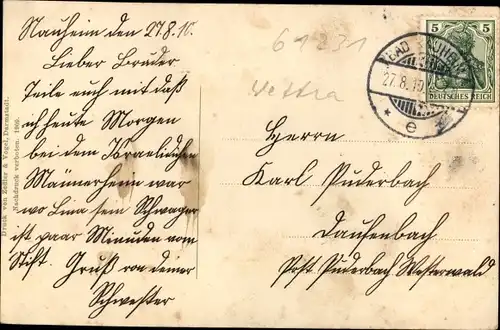 Nauheim den 27.8.10.
Lieber Bruder
Teile euch mit daß
ich heute Morgen
bei dem Israelischen
Männerheim war
wo Lina sein Schwager
ist paar Minuden vom
Stift. Gruß von deiner
Schwester
Druck von Zedler & Vogel, Darmstadt.
Nachdruck verboten. 1909.
61231
Wettra
BAD NAUHEIM
27.8.10
* e
5 5
DEUTSCHES REICH
Herrn
Karl Puderbach
Daufenbach
Post Puderbach Westerwald